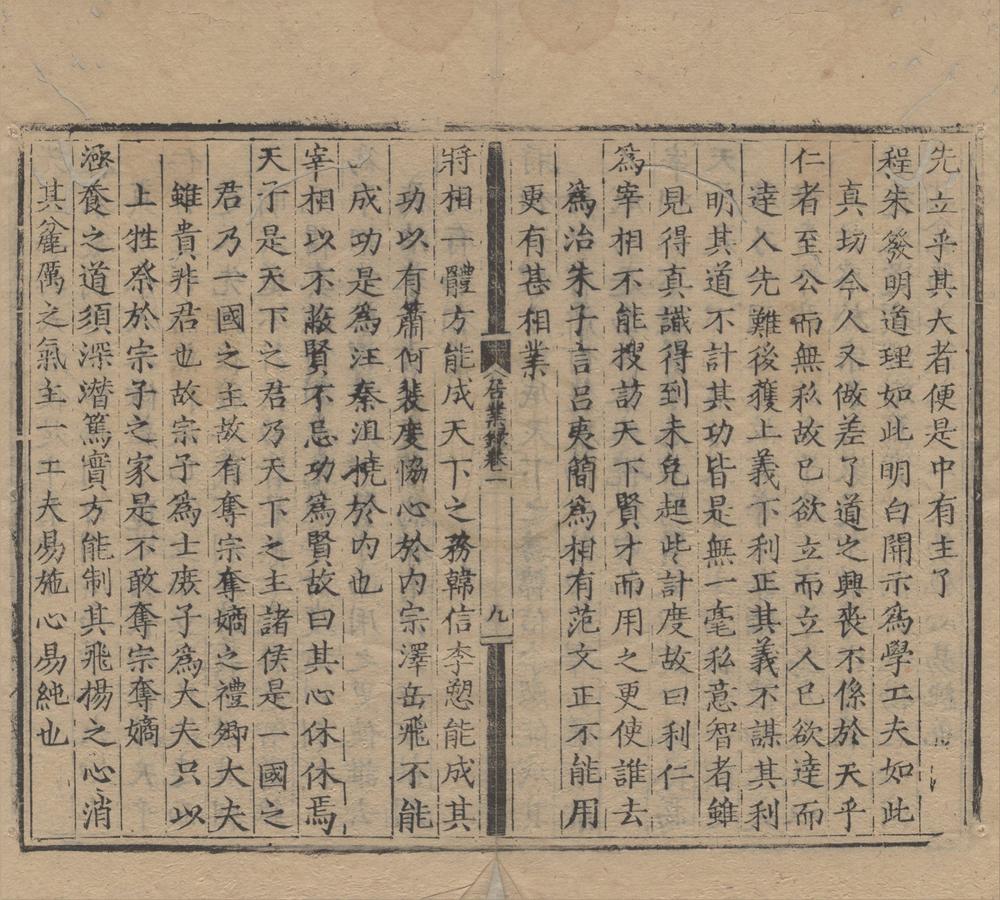 先立乎其大者便是中有主了
程朱發明道理如此明白開示爲學工夫如此
真切今人又做差了道之興喪不係於天乎
仁者至公而無私故已欲立而立人已欲達而
達人先難後獲上義下利正其義不謀其利
明其道不計其功皆是無一毫私意智者雖
見得真識得到未免起些計度故曰利仁
爲宰相不能搜訪天下賢才而用之更使誰去
爲治朱子言呂夷簡爲相有范文正不能用
更有甚相業
居業錄卷一
九
將相一體方能成天下之務韓信李愬能成其
功以有蕭何裴度恊心於内宗澤岳飛不能
成功是爲汪秦沮撓於内也
宰相以不蔽賢不忌功爲賢故曰其心休休焉
天子是天下之君乃天下之主諸侯是一國之
君乃一國之主故有奪宗奪嫡之禮卿大夫
雖貴非君也故宗子爲士庻子爲大夫只以
上牲祭於宗子之家是不敢奪宗奪嫡
涵養之道須深潜篤實方能制其飛揚之心消
其麄厲之氣主一工夫易施心易純也